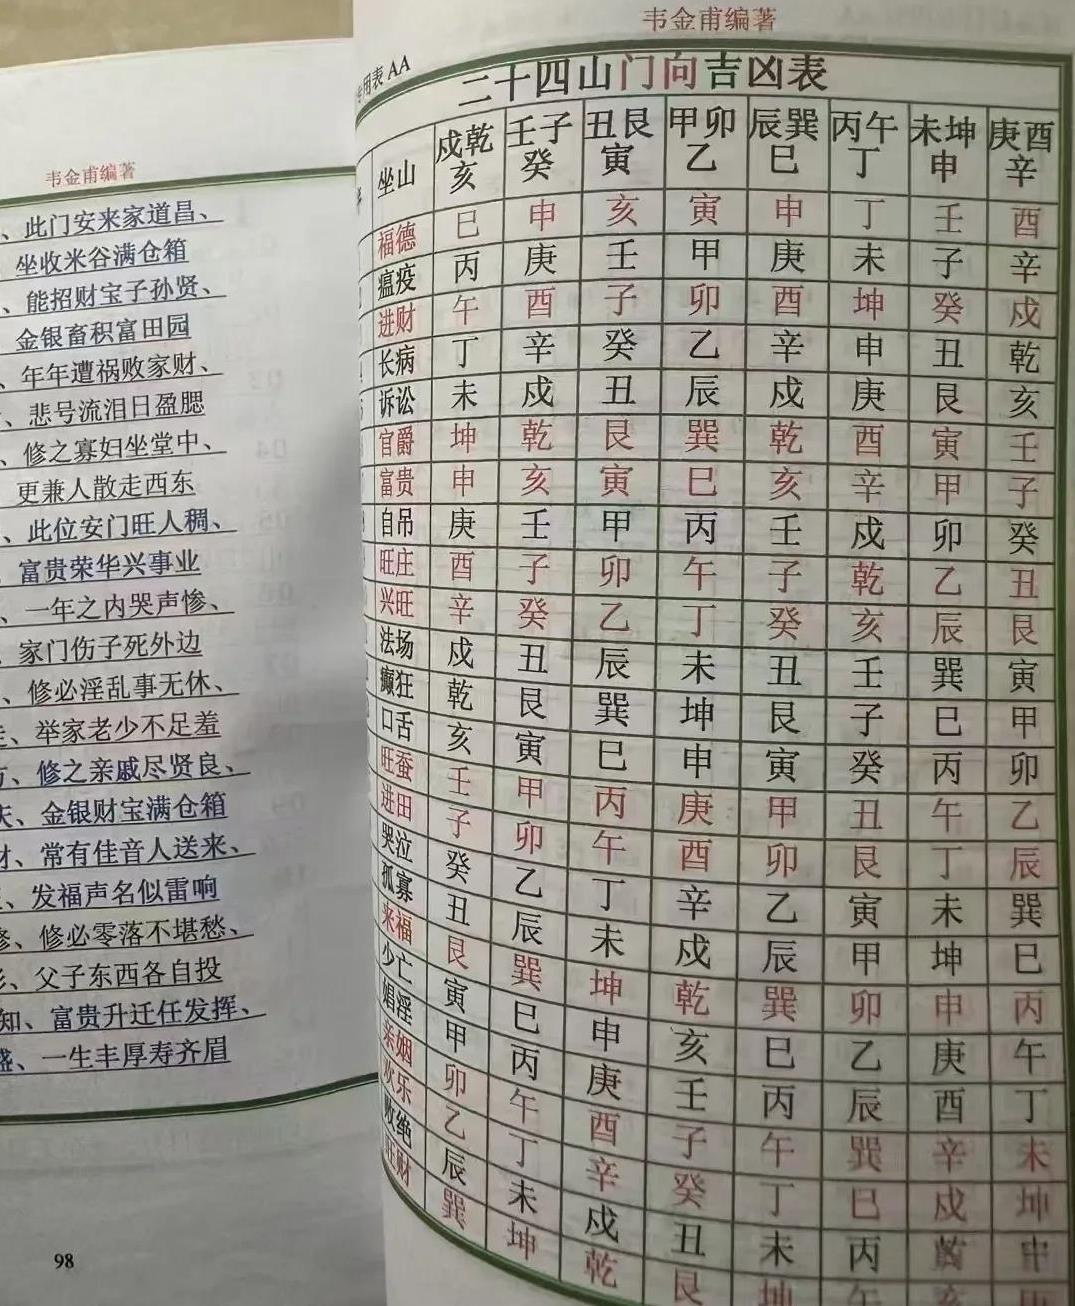 韦金甫编著
、此门安来家道昌、
坐收米谷满仓箱
、能招财宝子孙贤、
金银畜积富田园
、年年遭祸败家财、
、悲号流泪日盈腮
、修之寡妇坐堂中、
更兼人散走西东
、此位安门旺人稠、
富贵荣华兴事业
、一年之内哭声惨、
家门伤子死外边
、修必淫乱事无休、
、举家老少不足羞
、修之亲戚尽贤良、
、金银财宝满仓箱
财、常有佳音人送来、
、发福声名似雷响
、修必零落不堪愁、
、父子东西各自投
知、富贵升迁任发挥、
盛、一生丰厚寿齐眉
98
韦金甫编著
用表 AA
二十四山门向吉凶表
坐山 戌乾亥 壬子癸 丑艮寅 甲卯乙 辰巽巳 丙午丁 未坤申 庚酉辛
福德 巳 申 亥 寅 申 丁 壬 酉
瘟疫 丙 庚 壬 甲 庚 未 子 辛
进财 午 酉 子 卯 酉 坤 癸 戌
长病 丁 辛 癸 乙 辛 申 丑 乾
诉讼 未 戌 丑 辰 戌 庚 艮 亥
官爵 坤 乾 艮 巽 乾 酉 寅 壬
富贵 申 亥 寅 巳 亥 辛 甲 子
自吊 庚 壬 甲 丙 壬 戌 卯 癸
旺庄 酉 子 卯 午 子 乾 乙 丑
兴旺 辛 癸 乙 丁 癸 亥 辰 艮
法场 戌 丑 辰 未 丑 壬 巽 寅
癫狂 乾 艮 巽 坤 艮 子 巳 甲
口舌 亥 寅 巳 申 寅 癸 丙 卯
旺蚕 壬 甲 丙 庚 甲 丑 午 乙
进田 子 卯 午 酉 卯 艮 丁 辰
哭泣 癸 乙 丁 辛 乙 寅 未 巽
孤寡 丑 辰 未 戌 辰 甲 坤 巳
来福 艮 巽 坤 乾 巽 卯 申 丙
少亡 寅 巳 申 亥 巳 乙 庚 午
娼淫 甲 丙 庚 壬 丙 辰 酉 丁
亲姻 卯 午 酉 子 午 巽 辛 未
欢乐 乙 丁 辛 癸 丁 巳 戌 坤
败绝 辰 未 戌 丑 未 丙 申
旺财 巽 坤 乾 艮 坤 午 亥